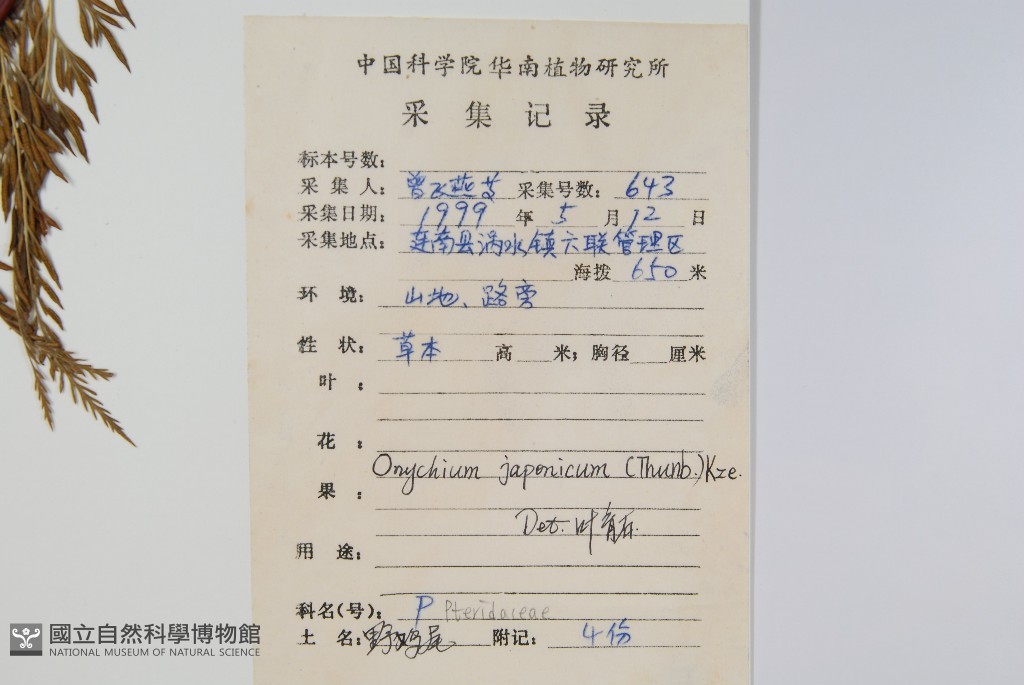 中国科学院华南植物研究所
采集记录
标本号数：
采集人：曾飞燕等 采集号数：643
采集日期：1999年5月12日
采集地点：连南县涡水镇六联管理区
海拨 650 米
环境：山地、路旁
性状：草本 高 米；胸径 厘米
叶：
花：
Onychium japonicum (Thunb.) Kze.
果：
Det. 叶
用途：
科名(号)：P Pteridaceae
土名：野鸡尾 附记：4份
國立自然科學博物館
NATIONAL MUSEUM OF NATURAL SCIENCE